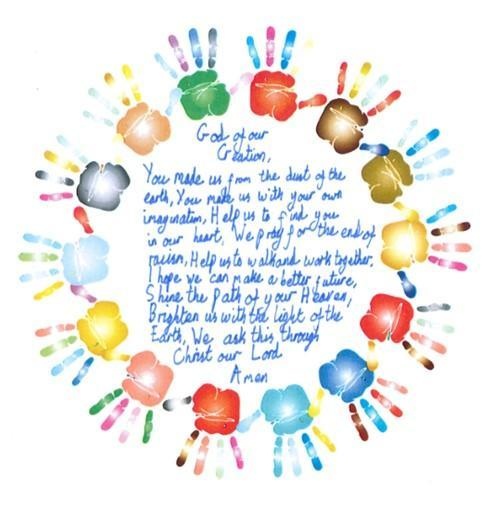 God of our
Creation,
You made us from the dust of the
earth, You made us with your own
imagination, Help us to find you
in our heart, We pray for the end of
racism, Help us to walk and work together.
I hope we can make a better future,
Shine the Path of your Heaven,
Brighten us with the Light of the
Earth, We ask this through
Christ our Lord
Amen